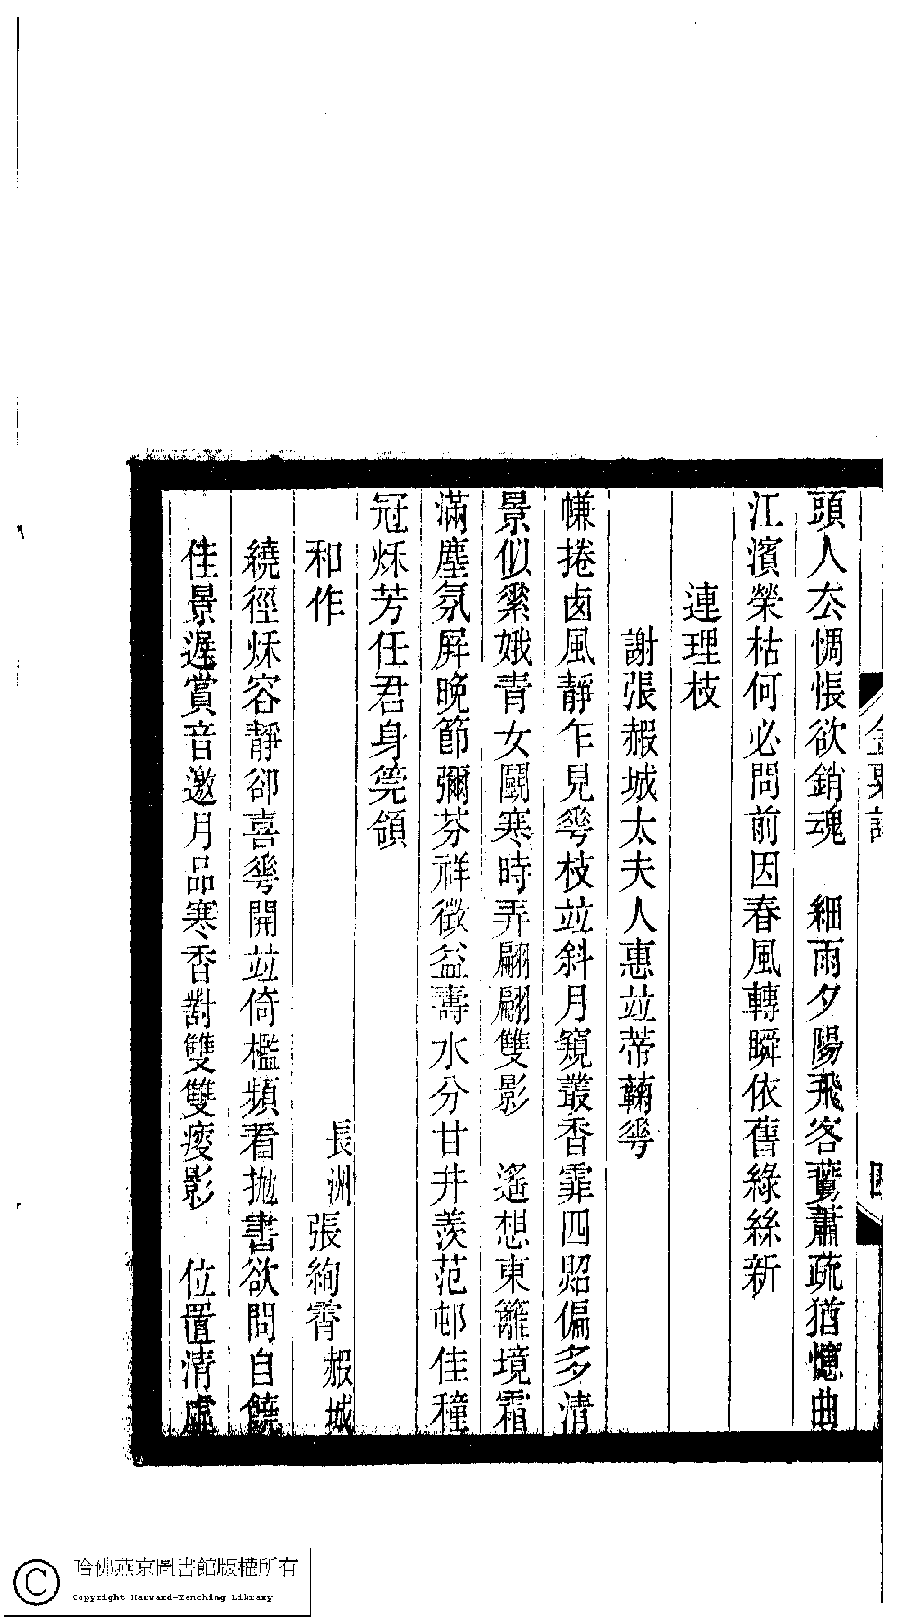 頭人厺惆悵欲銷魂　細雨夕陽飛客鶩蕭疏猶憶曲
江濱榮枯何必問前因春風轉瞬依舊綠絲新
連理枝
謝張赮城太夫人惠竝蒂蘜蕚
幰捲鹵風靜乍見蕚枝竝斜月窺叢香霏四照偏多清
景似縏娥青女鬬寒時弄翩翩雙影　遙想東籬境霜
滿塵氛屏晚節彌芬祥徵益壽水分甘井羨范邨佳種
冠秌芳任君身筦領
和作　長洲張絢霄赮城
繞徑秌容靜卻喜蕚開竝倚檻頻看拋書欲問自饒
佳景遲賞音邀月品寒香對雙雙瘦影　位置清虛
四
哈佛燕京圖書館版權所有
Copyright Harvard-Yenching Library